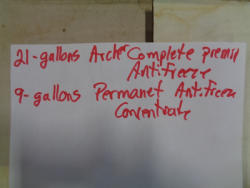 21-gallons Archer Complete premix
Antifreeze
9-gallons Permanet Antifreeze
Concentrate